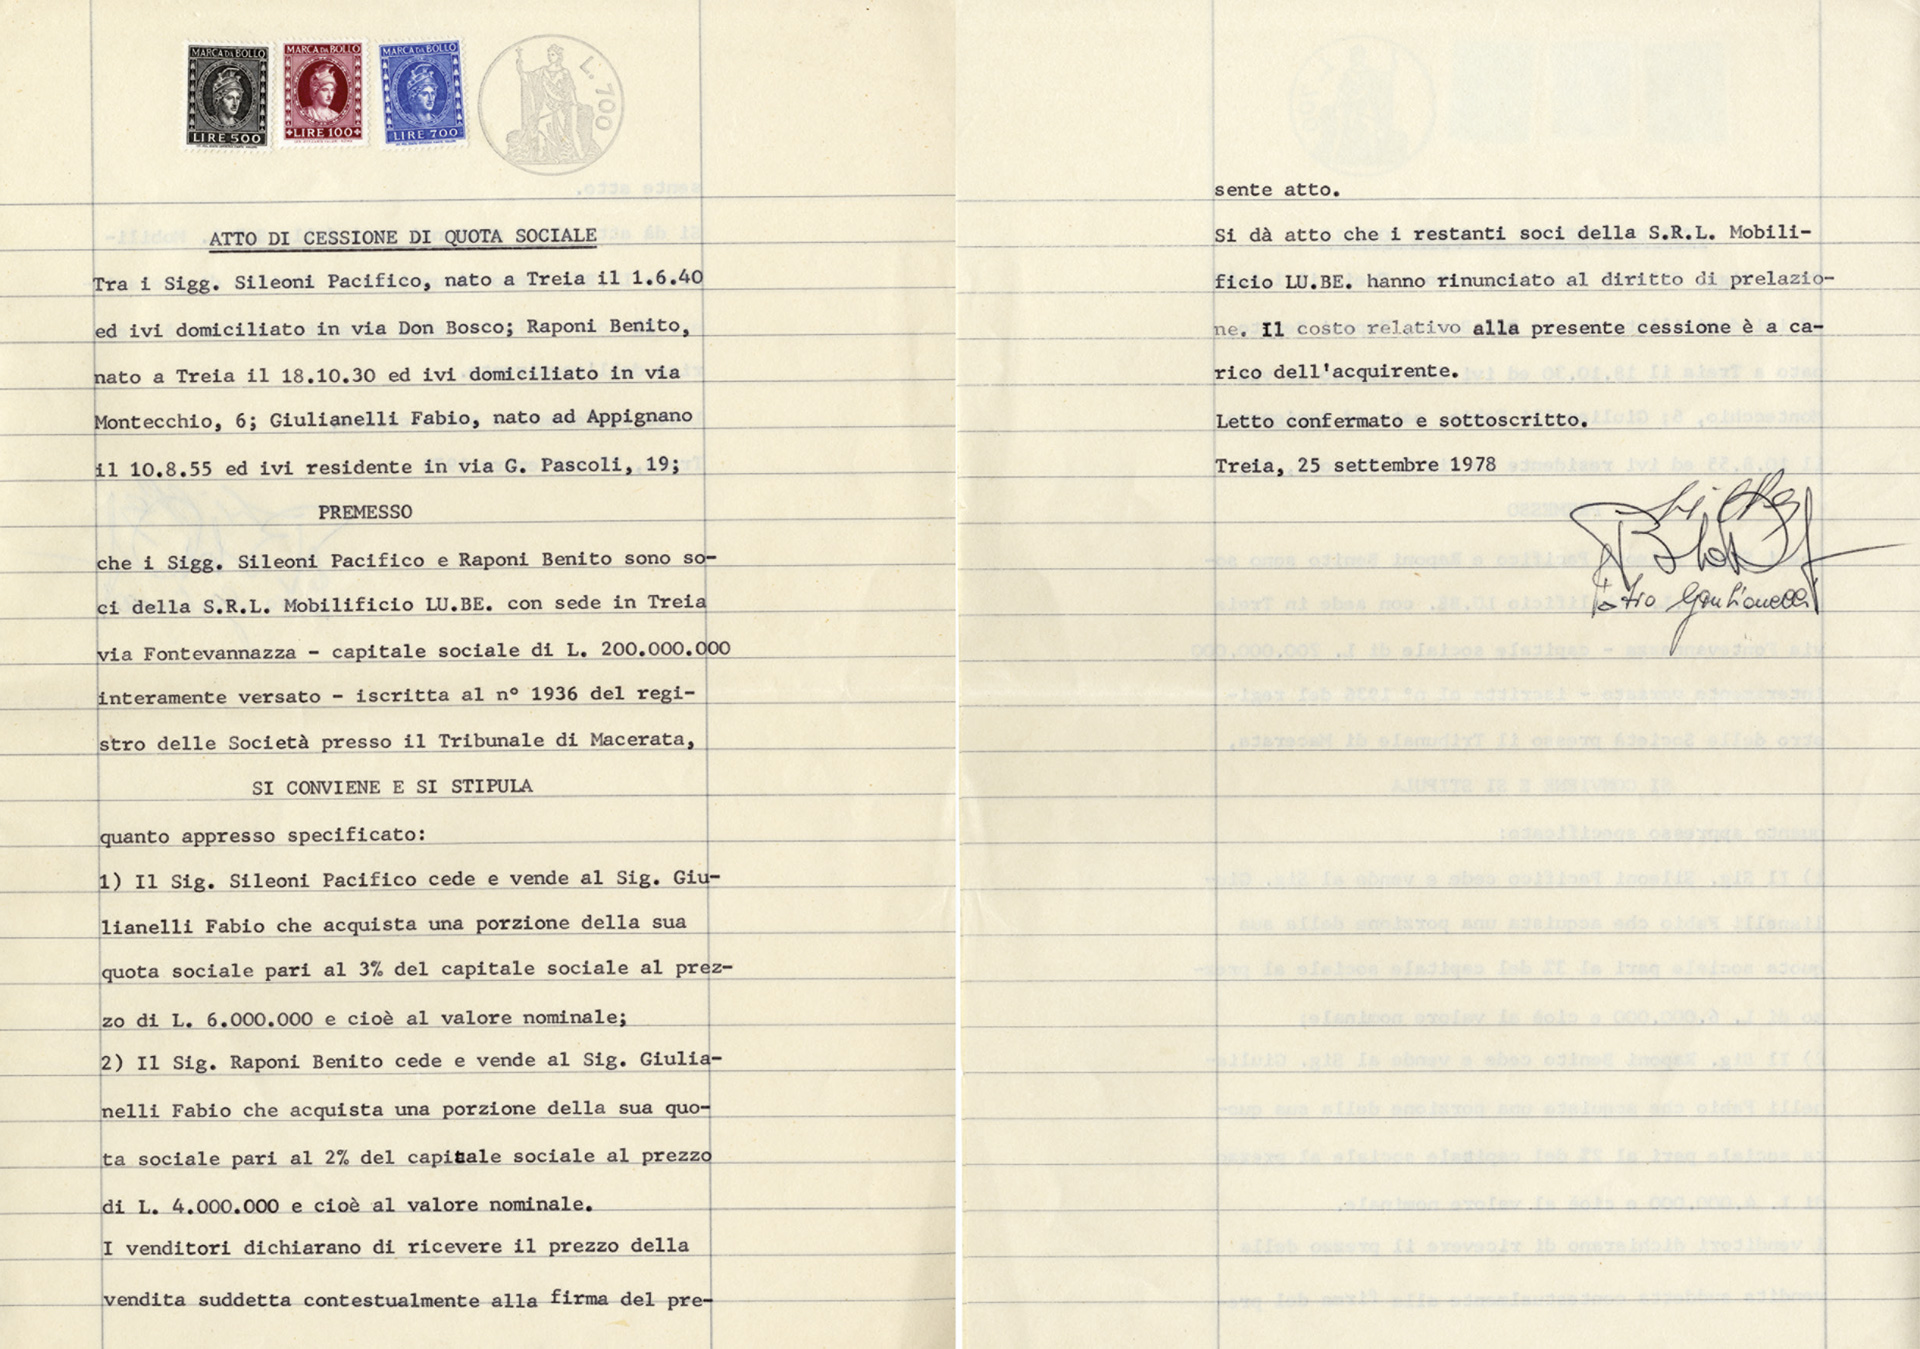 MARCA DA BOLLO
LIRE 500
MARCA DA BOLLO
LIRE 100
MARCA DA BOLLO
LIRE 700
L. 700
ATTO DI CESSIONE DI QUOTA SOCIALE
Tra i Sigg. Sileoni Pacifico, nato a Treia il 1.6.40
ed ivi domiciliato in via Don Bosco; Raponi Benito,
nato a Treia il 18.10.30 ed ivi domiciliato in via
Montecchio, 6; Giulianelli Fabio, nato ad Appignano
il 10.8.55 ed ivi residente in via G. Pascoli, 19;
PREMESSO
che i Sigg. Sileoni Pacifico e Raponi Benito sono so-
ci della S.R.L. Mobilificio LU.BE. con sede in Treia
via Fontevannazza - capitale sociale di L. 200.000.000
interamente versato - iscritta al n° 1936 del regi-
stro delle Società presso il Tribunale di Macerata,
SI CONVIENE E SI STIPULA
quanto appresso specificato:
1) Il Sig. Sileoni Pacifico cede e vende al Sig. Giu-
lianelli Fabio che acquista una porzione della sua
quota sociale pari al 3% del capitale sociale al prez-
zo di L. 6.000.000 e cioè al valore nominale;
2) Il Sig. Raponi Benito cede e vende al Sig. Giulia-
nelli Fabio che acquista una porzione della sua quo-
ta sociale pari al 2% del capitale sociale al prezzo
di L. 4.000.000 e cioè al valore nominale.
I venditori dichiarano di ricevere il prezzo della
vendita suddetta contestualmente alla firma del pre-
sente atto.
Si dà atto che i restanti soci della S.R.L. Mobili-
ficio LU.BE. hanno rinunciato al diritto di prelazio-
ne. Il costo relativo alla presente cessione è a ca-
rico dell'acquirente.
Letto confermato e sottoscritto.
Treia, 25 settembre 1978
Fabio Giulianelli